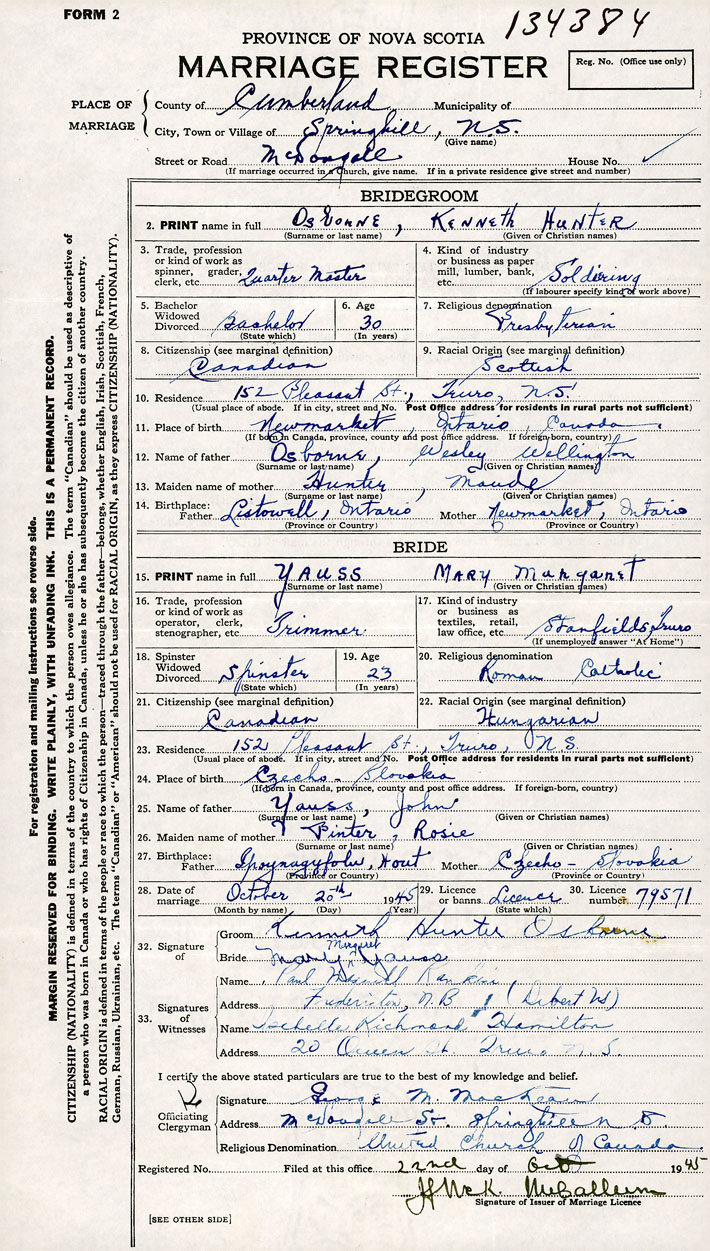 FORM 2
134384
PROVINCE OF NOVA SCOTIA
MARRIAGE REGISTER
Reg. No. (Office use only)
PLACE OF MARRIAGE
County of Cumberland Municipality of
City, Town or Village of Springhill, N.S.
(Give name)
Street or Road McDougall House No. ✓
(If marriage occurred in a Church, give name. If in a private residence give street and number)
BRIDEGROOM
2. PRINT name in full Osborne, Kenneth Hunter
(Surname or last name) (Given or Christian names)
3. Trade, profession or kind of work as spinner, grader, clerk, etc. Quarter Master
4. Kind of industry or business as paper mill, lumber, bank, etc. Soldiering
(If labourer specify kind of work above)
5. Bachelor Widowed Divorced Bachelor
(State which)
6. Age 30
(In years)
7. Religious denomination Presbyterian
8. Citizenship (see marginal definition) Canadian
9. Racial Origin (see marginal definition) Scottish
10. Residence 152 Pleasant St., Truro, N.S.
(Usual place of abode. If in city, street and No. Post Office address for residents in rural parts not sufficient)
11. Place of birth Newmarket, Ontario, Canada
(If born in Canada, province, county and post office address. If foreign-born, country)
12. Name of father Osborne, Wesley Wellington
(Surname or last name) (Given or Christian names)
13. Maiden name of mother Hunter, Maude
(Surname or last name) (Given or Christian names)
14. Birthplace: Father Listowell, Ontario Mother Newmarket, Ontario
(Province or Country) (Province or Country)
BRIDE
15. PRINT name in full Yauss Mary Margaret
(Surname or last name) (Given or Christian names)
16. Trade, profession or kind of work as operator, clerk, stenographer, etc. Trimmer
17. Kind of industry or business as textiles, retail, law office, etc. Stanfields, Truro
(If unemployed answer "At Home")
18. Spinster Widowed Divorced Spinster
(State which)
19. Age 23
(In years)
20. Religious denomination Roman Catholic
21. Citizenship (see marginal definition) Canadian
22. Racial Origin (see marginal definition) Hungarian
23. Residence 152 Pleasant St., Truro, N.S.
(Usual place of abode. If in city, street and No. Post Office address for residents in rural parts not sufficient)
24. Place of birth Czecho-Slovakia
(If born in Canada, province, county and post office address. If foreign-born, country)
25. Name of father Yauss, John
(Surname or last name) (Given or Christian names)
26. Maiden name of mother Pinter, Rosie
(Surname or last name) (Given or Christian names)
27. Birthplace: Father Mother Czecho-Slovakia
(Province or Country) (Province or Country)
28. Date of marriage October 20th 1945
(Month by name) (Day) (Year)
29. Licence or banns Licence
(State which)
30. Licence number 79571
32. Signature of
Groom Kenneth Hunter Osborne
Bride Mary Margaret Yauss
33. Signatures of Witnesses
Name Paul Rankin
Address Fredericton, N.B. (Debert NS)
Name Isabelle Richmond Hamilton
Address 20 Queen St. Truro N.S.
I certify the above stated particulars are true to the best of my knowledge and belief.
Officiating Clergyman
Signature George M. MacKean
Address McDougall St. Springhill N S.
Religious Denomination United Church of Canada
Registered No. Filed at this office 22nd day of Oct 1945
McCallum
Signature of Issuer of Marriage Licence
[SEE OTHER SIDE]
For registration and mailing instructions see reverse side.
MARGIN RESERVED FOR BINDING. WRITE PLAINLY, WITH UNFADING INK. THIS IS A PERMANENT RECORD.
CITIZENSHIP (NATIONALITY) is defined in terms of the country to which the person owes allegiance. The term "Canadian" should be used as descriptive of
a person who was born in Canada or who has rights of Citizenship in Canada, unless he or she has subsequently become the citizen of another country.
RACIAL ORIGIN is defined in terms of the people or race to which the person—traced through the father—belongs, whether English, Irish, Scottish, French,
German, Russian, Ukrainian, etc. The terms "Canadian" or "American" should not be used for RACIAL ORIGIN, as they express CITIZENSHIP (NATIONALITY).